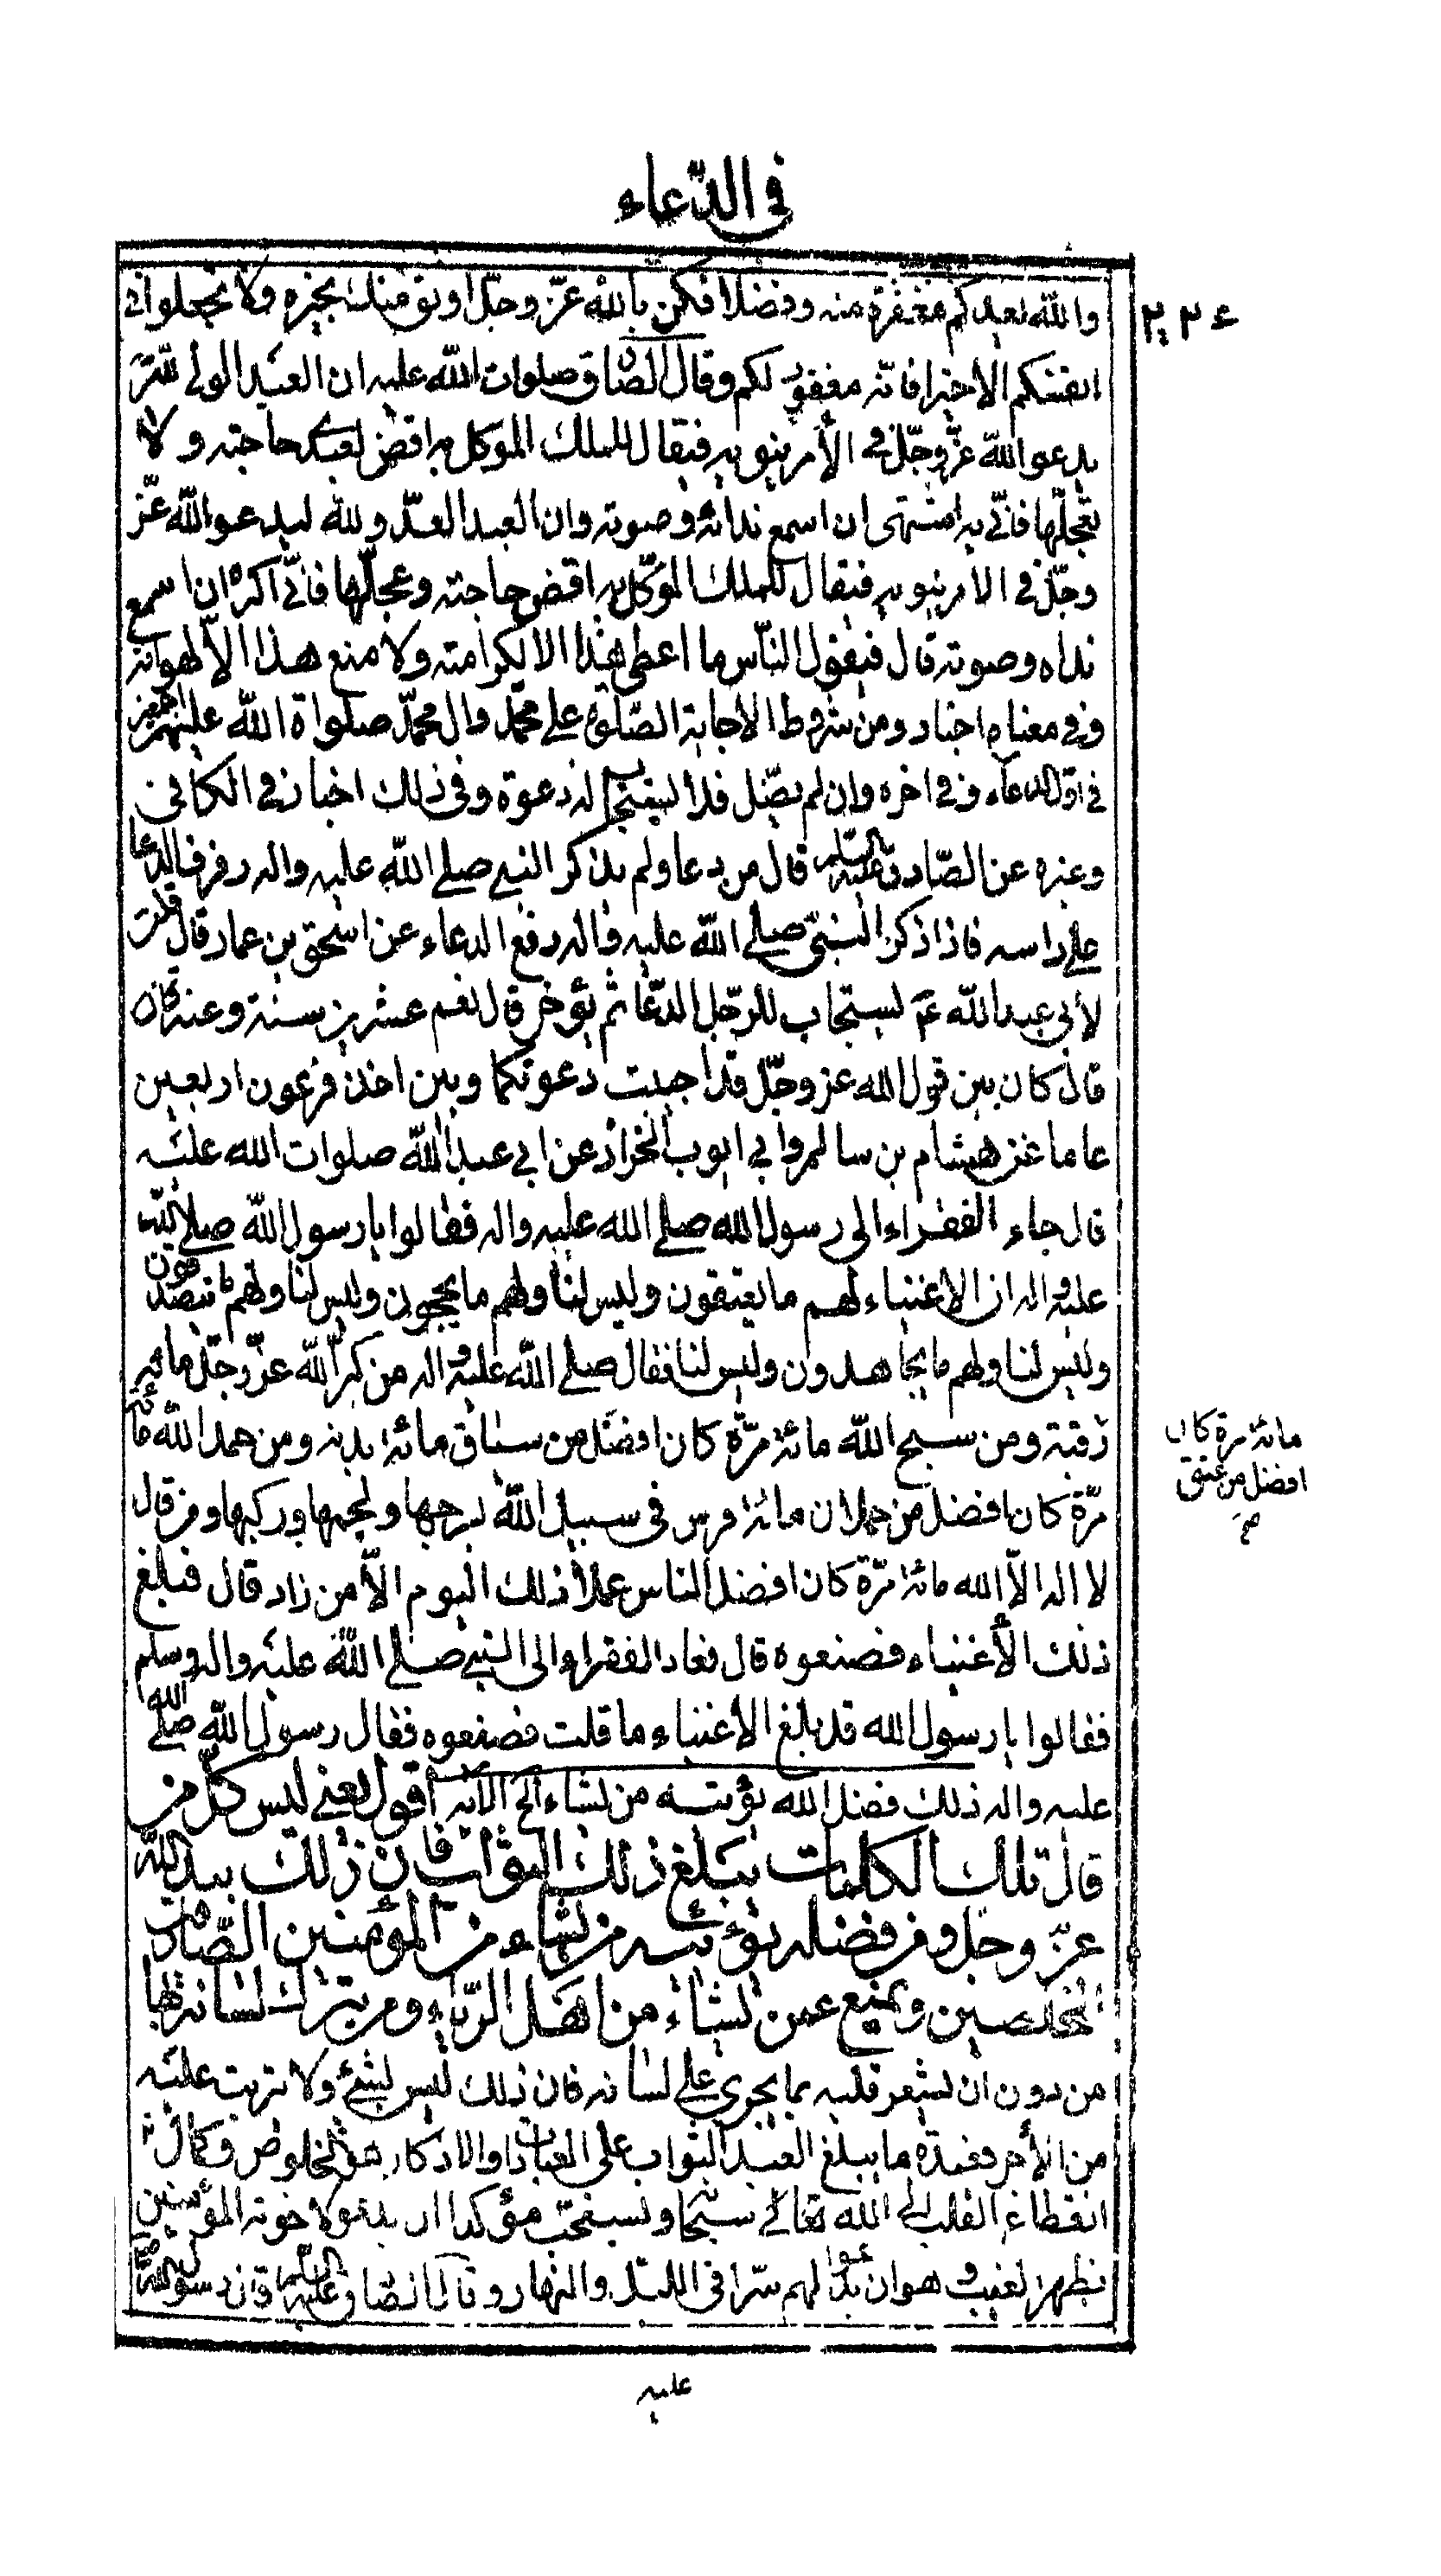 في الدّعاء
والله يعدكم مغفرة منه وفضلا فكن بالله عزّ وجلّ اوثق منك بغيره ولا تجعلوا في
٢٢۶
انفسكم الا خيرا فانّه مغفور لكم وقال الصّادق صلوات الله عليه ان العبد الولي لله
يدعو الله عزّ وجلّ في الأمر ينوبه فيقال للملك الموكل به اقض لعبدى حاجته ولا
تعجّلها فانّي اشتهى ان اسمع ندائه وصوته وان العبد العدّو لله ليدعو الله عزّ
وجلّ في الامر ينوبه فيقال للملك الموكّل به اقض حاجته وعجّلها فانّي اكره ان اسمع
نداه وصوته قال فيقول النّاس ما اعطى هذا الا لكرامته ولا منع هذا الّا لهوانه
وفي معناه اخبار ومن شروط الاجابة الصّلوة على محمّد وال محمّد صلواة الله عليهم اجمعين
في اوّل الدعاء وفي اخره وان لم يصّل فلا ليستجاب له دعوة وفي ذلك اخبار في الكافي
وغيره عن الصّادق عليه السّلم قال من دعا ولم يذكر النبي صلى الله عليه واله رفرف الدعا
على راسه فاذا ذكر النبّي صلى الله عليه واله رفع الدعاء عن اسحق بن عمار قال قلت
لأبي عبد الله عَ ليستجاب للرجّل الدّعا ثم يؤخر قال نعم عشرين سنة وعنه
قال كان بين قول الله عز وجلّ قد اجيبت دعوتكما وبين اخذ فرعون اربعين
عاما عن هشام بن سالم وابي ايوب الخزاز عن ابي عبد الله صلوات الله عليه
قال جاء الفقراء الى رسول الله صلى الله عليه واله فقالوا يا رسول الله صلى الله
عليه واله ان الاغنياء لهم ما يعتقون وليس لنا ولهم ما يحجون وليس لنا ولهم ما يتصدقون
وليس لنا ولهم ما يجاهدون وليس لنا فقال صلى الله عليه واله من كبر الله عزّ وجلّ مائه
رقبة ومن سبح الله مائة مرّة كان افضل من سياق مائة بدنه ومن حمد الله مائة
مائة مرة كان
افضل من عتق
صح
مرّة كان افضل من حملان مائة فرس في سبيل الله بسرجها ولجمها وركبها ومن قال
لا اله الّا الله مائة مرّة كان افضل الناس عملا ذلك اليوم الّا من زاد قال فبلغ
ذلك الأغنياء فصنعوه قال فعاد الفقراء الى النبي صلى الله عليه واله وسلم
فقالوا يا رسول الله قد بلغ الاغنياء ما قلت فصنعوه فقال رسول الله صلى الله
عليه واله ذلك فضل الله يؤتيه من يشاء الخ الآية اقول يعني ليس كل من
قال تلك الكلمات يبلغ ذلك الثواب فان ذلك بيد الله
عزّ وجل ومن فضله يؤتيه من يشاء من المؤمنين الصّادقين
المخلصين ويمنع عمن يشاء من اهل الرّياء ومن يتحرك لسانه بها
من دون ان يشعر قلبه بما يجرى على لسانه فان ذلك ليس بشئ ولا ترتب عليه
من الأجر وعمدة ما يبلغ العبد الثواب على العبادات والاذكار هو الخلوص وكمال
انقطاع القلب الى الله تعالى سبحا ويستحبّ مؤكدا ان يدعو لاخوته المؤمنين
بظهر الغيب وهو ان يدعوا لهم سرّا في الليل والنهار وقال الصّادق عليه السّلم قال رسول الله
عليه